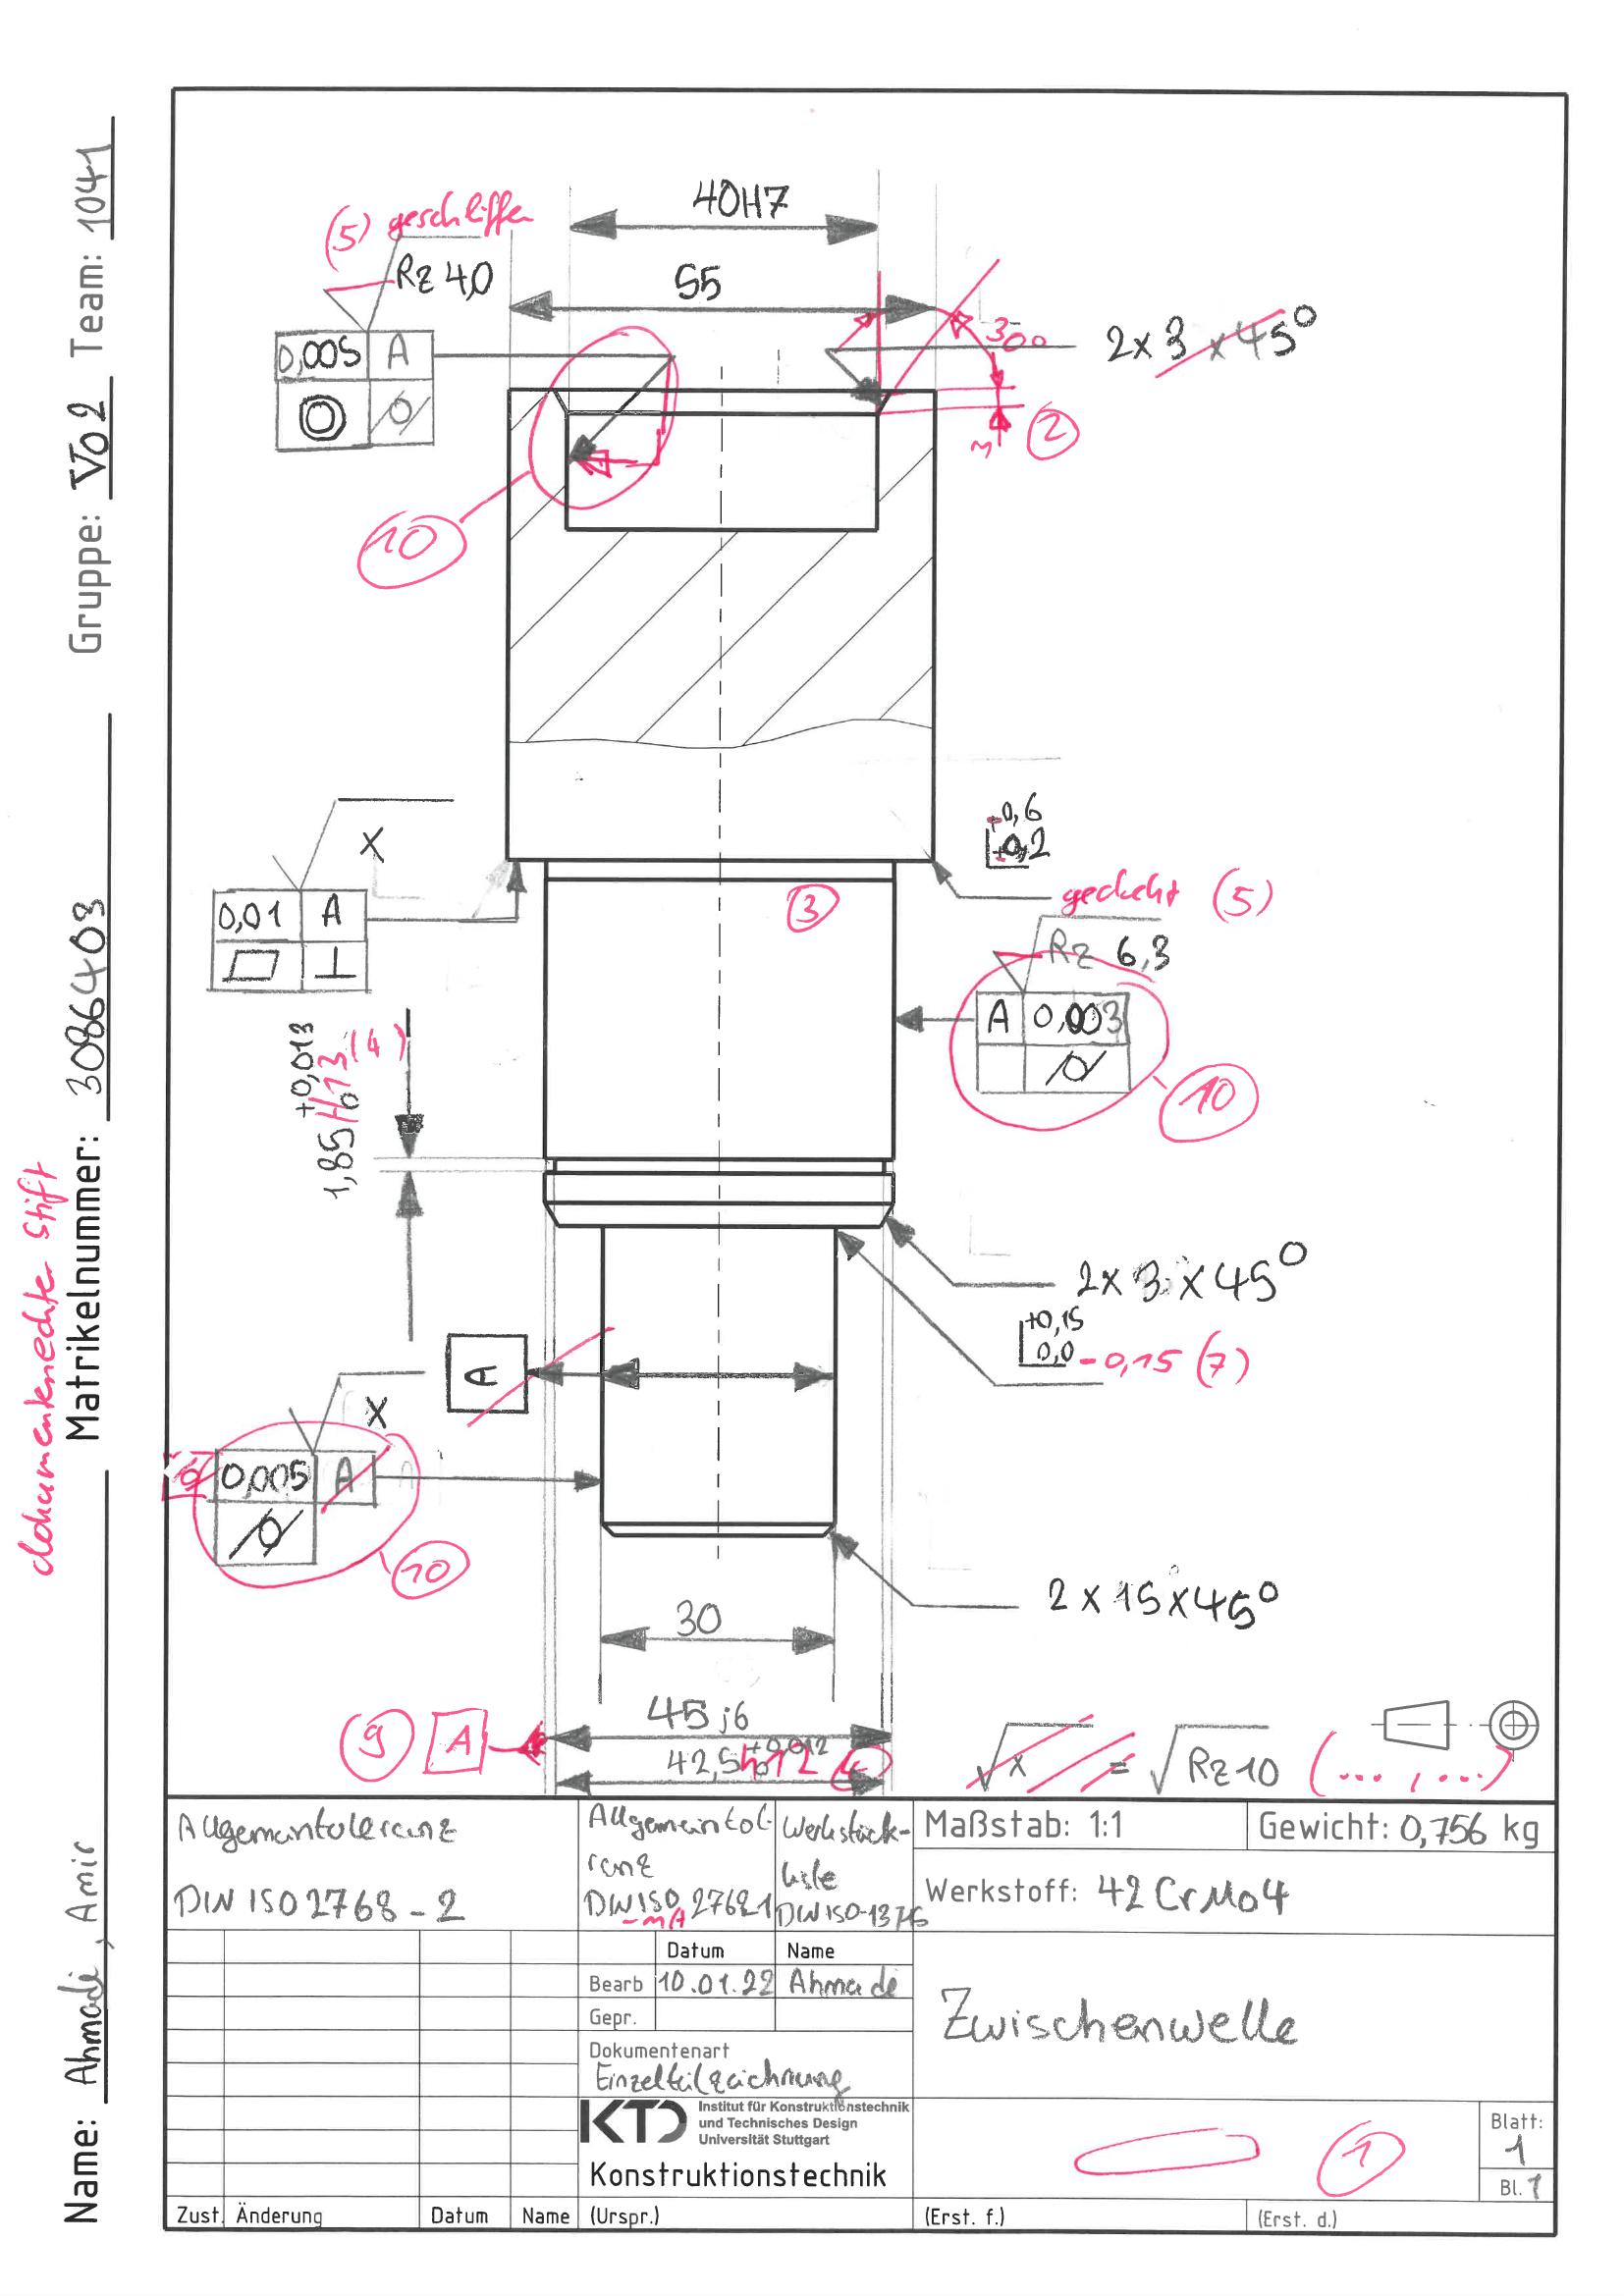 Name: Ahmadi, Amir
Matrikelnummer: 3086403
Gruppe: Vo2 Team: 1041
dokumentenechter Stift
40H7
(5) geschliffen
Rz 4,0
55
0,005 A
30°
2x3 x45°
3
2
10
+0,6
+0,2
X
3
gedreht (5)
0,01 A
Rz 6,3
A 0,003
10
1,85 +0,013
0
H13 (4)
2x3x45°
+0,15
0,0 -0,15 (7)
A
X
0,005 A
10
2x15x45°
30
45 j6
9 A
42,5 +0,012
0
h12 4
x = Rz10 (... , ...)
Allgemeintoleranz
DIN ISO 2768-2
Allgemeintol-
ranz
DIN ISO 2768-1
-mA
Werkstück-
DIN ISO-13715
Maßstab: 1:1
Gewicht: 0,756 kg
Werkstoff: 42CrMo4
Datum Name
Bearb 10.01.22 Ahmadi
Gepr.
Dokumentenart
Einzelteilzeichnung
Zwischenwelle
KTD
Institut für Konstruktionstechnik
und Technisches Design
Universität Stuttgart
Konstruktionstechnik
1
Blatt:
1
Bl. 1
Zust. Änderung Datum Name (Urspr.) (Erst. f.) (Erst. d.)